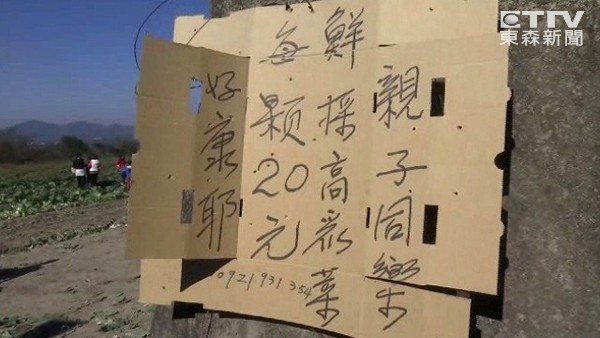 親子同樂
鮮採高麗菜
每顆20元
好康耶
0921931354
CTTV
東森新聞